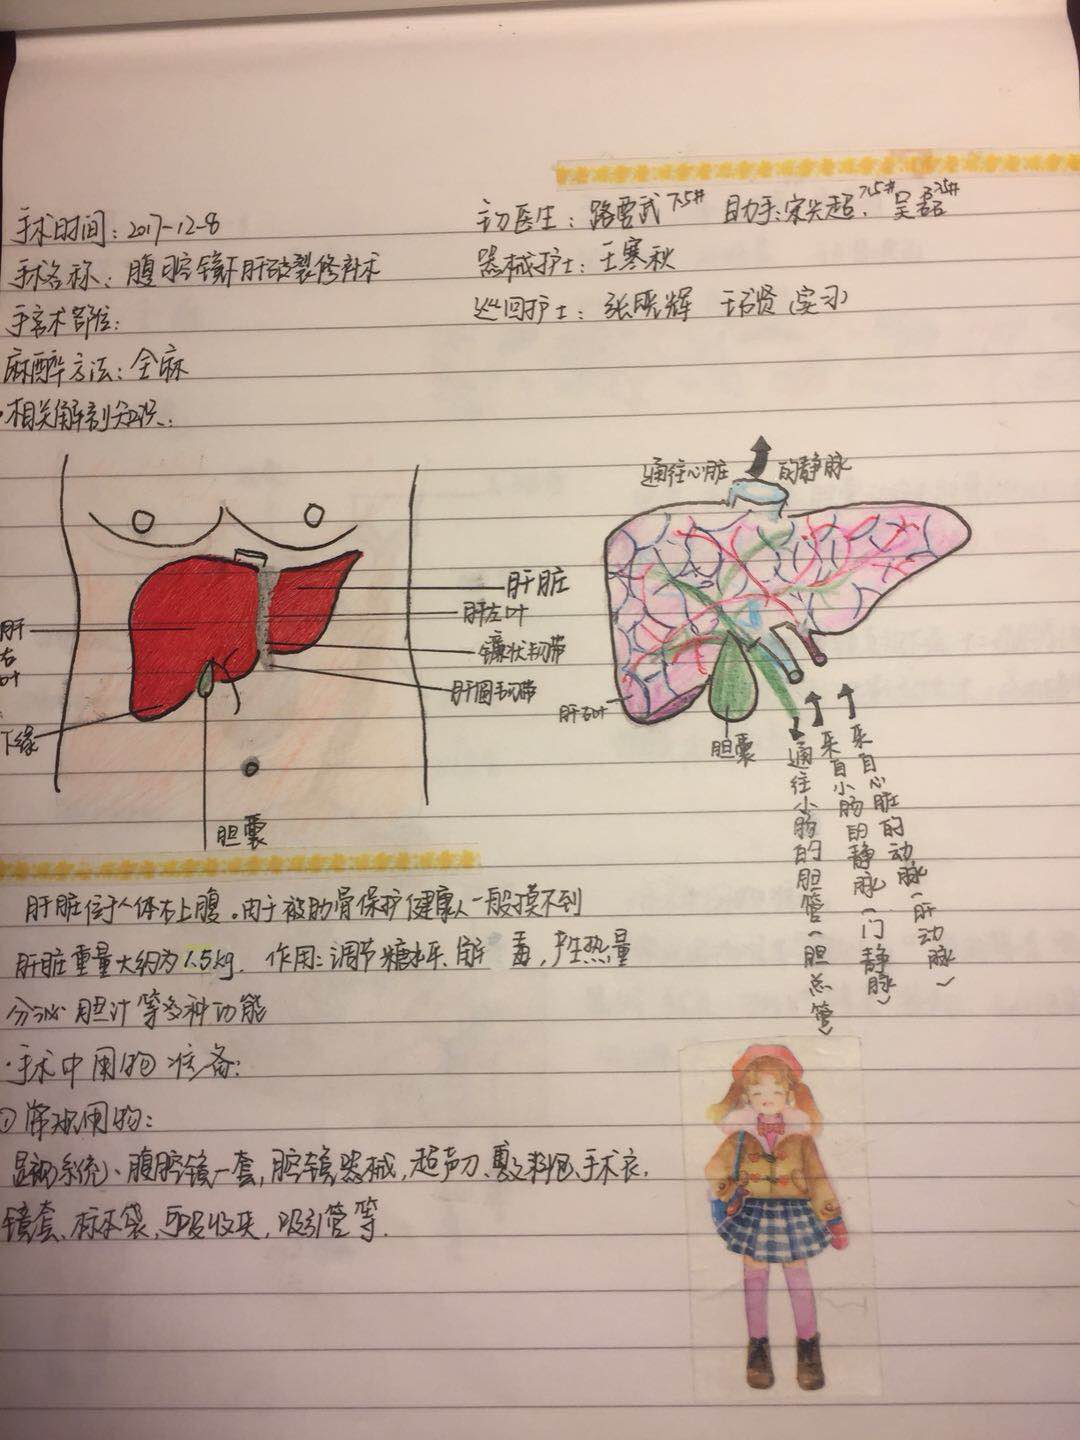 手术时间：2017-12-8
手术名称：腹腔镜下肝破裂修补术
手术部位：
麻醉方法：全麻
·相关解剖知识：
主刀医生：路雪武 7.5# 助手：宋尖超 7.5#、吴磊 7.5#
器械护士：王寒秋
巡回护士：张晓辉 (实习)
肝脏
肝左叶
镰状韧带
肝圆韧带
肝右叶
下缘
胆囊
通往心脏的静脉
肝右叶
胆囊
通往小肠的胆管(胆总管)
来自小肠的静脉(门静脉)
来自心脏的动脉(肝动脉)
肝脏位于人体右上腹。由于被肋骨保护健康人一般摸不到
肝脏重量大约为1.5kg. 作用：调节糖水平、解毒，产生热量
分泌胆汁等多种功能
·手术中用物准备：
①常规用物：
显视系统、腹腔镜一套，腔镜器械，超声刀、敷料包、手术衣.
镜套、标本袋、可吸收夹，吸引管等.